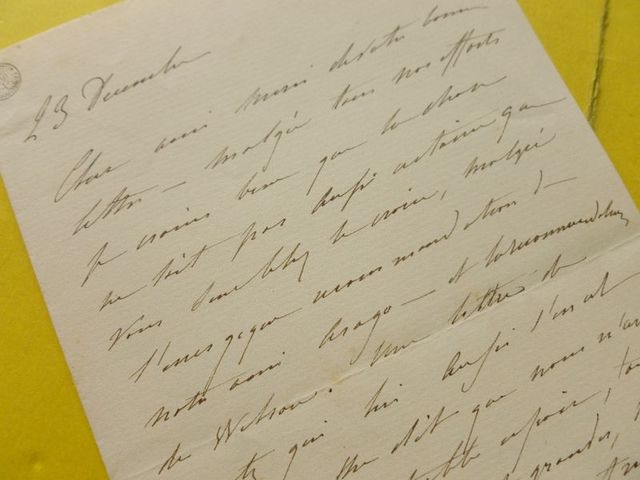 23 Decembre
Cher ami merci de votre bonne
lettre — malgré tous nos efforts
je crains bien que la chose
ne soit pas aussi certaine que
vous semblez le croire, malgré
l'energique recommandation de
notre ami Arago — et la recommandation
de Wilson. Une lettre de
qui lui aussi s'en est
me dit que nous n'av
espoir, tou
grandes,